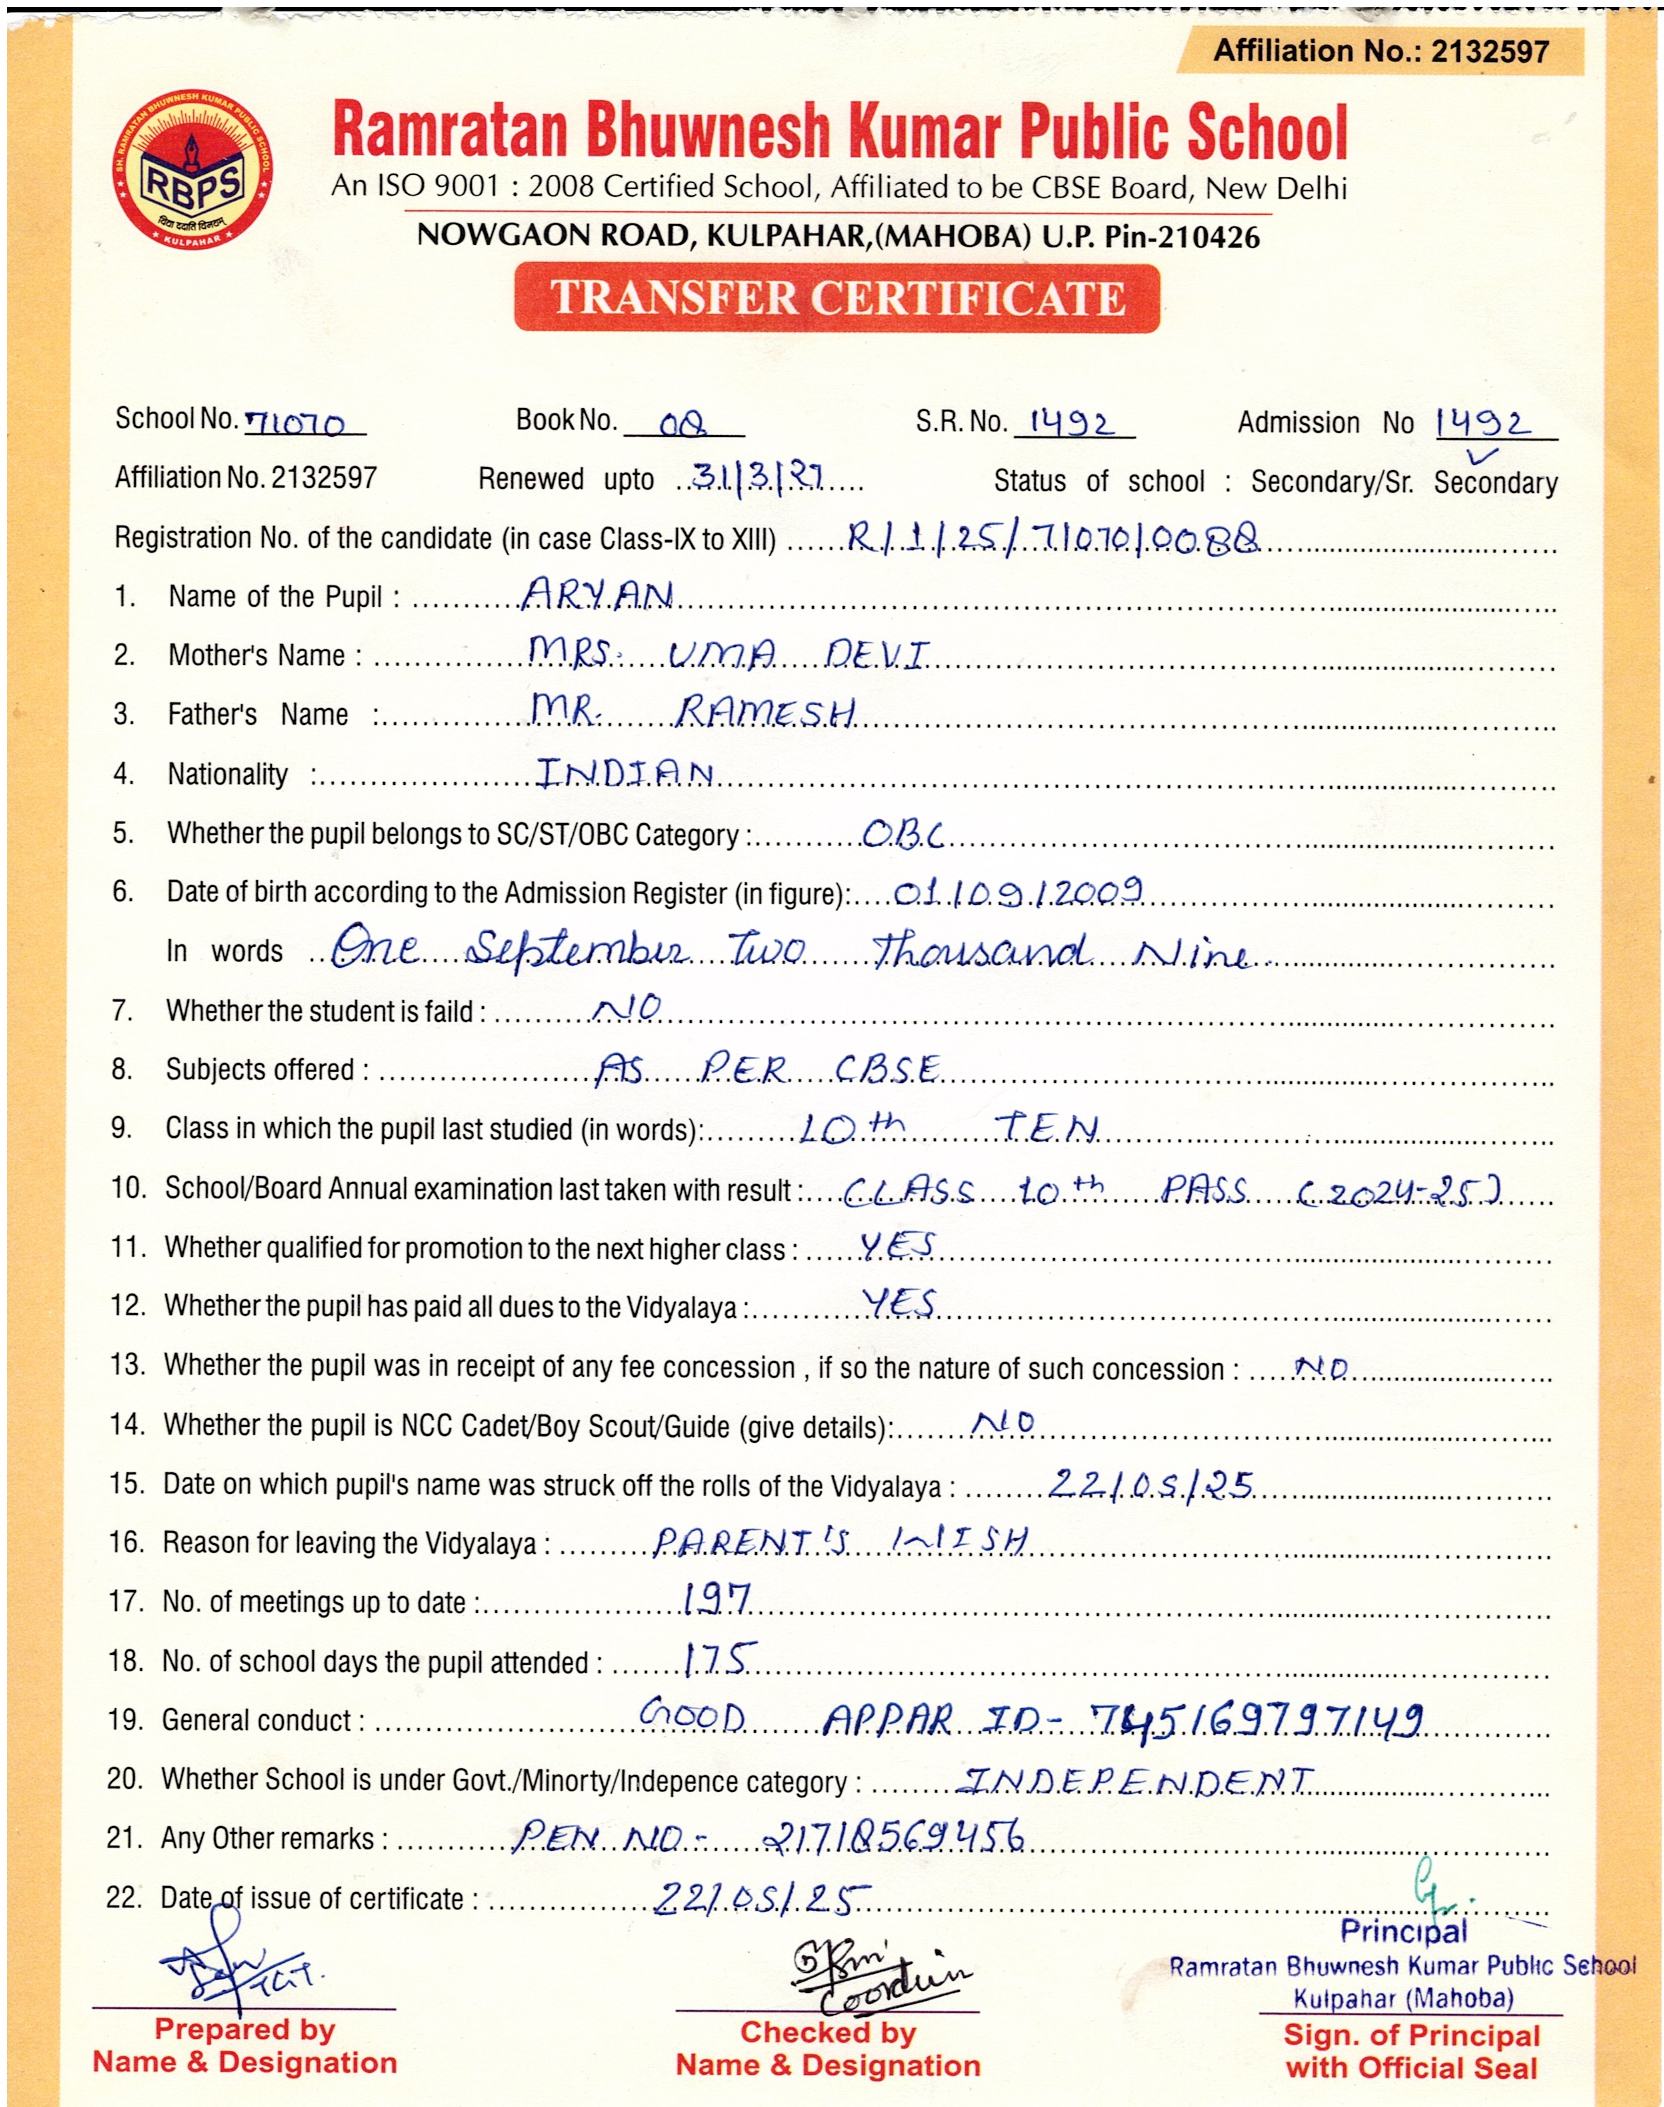 Affiliation No.: 2132597
SH. RAMRATAN BHUWNESH KUMAR PUBLIC SCHOOL
RBPS
विद्या ददाति विनयम्
KULPAHAR
Ramratan Bhuwnesh Kumar Public School
An ISO 9001 : 2008 Certified School, Affiliated to be CBSE Board, New Delhi
NOWGAON ROAD, KULPAHAR,(MAHOBA) U.P. Pin-210426
TRANSFER CERTIFICATE
School No. 71070 Book No. 08 S.R. No. 1492 Admission No 1492
Affiliation No. 2132597 Renewed upto 31/3/27 Status of school : Secondary/Sr. Secondary
Registration No. of the candidate (in case Class-IX to XIII) R/1/25/71070/0088
1. Name of the Pupil : ARYAN
2. Mother's Name : MRS. UMA DEVI
3. Father's Name : MR. RAMESH
4. Nationality : INDIAN
5. Whether the pupil belongs to SC/ST/OBC Category : OBC
6. Date of birth according to the Admission Register (in figure): 01/09/2009
In words One September Two Thousand Nine
7. Whether the student is faild : NO
8. Subjects offered : AS PER CBSE
9. Class in which the pupil last studied (in words): 10th TEN
10. School/Board Annual examination last taken with result : CLASS 10th PASS (2024-25)
11. Whether qualified for promotion to the next higher class : YES
12. Whether the pupil has paid all dues to the Vidyalaya : YES
13. Whether the pupil was in receipt of any fee concession , if so the nature of such concession : NO
14. Whether the pupil is NCC Cadet/Boy Scout/Guide (give details): NO
15. Date on which pupil's name was struck off the rolls of the Vidyalaya : 22/05/25
16. Reason for leaving the Vidyalaya : PARENT'S WISH
17. No. of meetings up to date : 197
18. No. of school days the pupil attended : 175
19. General conduct : GOOD APPAR ID- 745169797149
20. Whether School is under Govt./Minorty/Indepence category : INDEPENDENT
21. Any Other remarks : PEN NO.- 21718569456
22. Date of issue of certificate : 22/05/25
TGT.
Principal
Ramratan Bhuwnesh Kumar Public School
Kulpahar (Mahoba)
Prepared by Checked by Sign. of Principal
Name & Designation Name & Designation with Official Seal